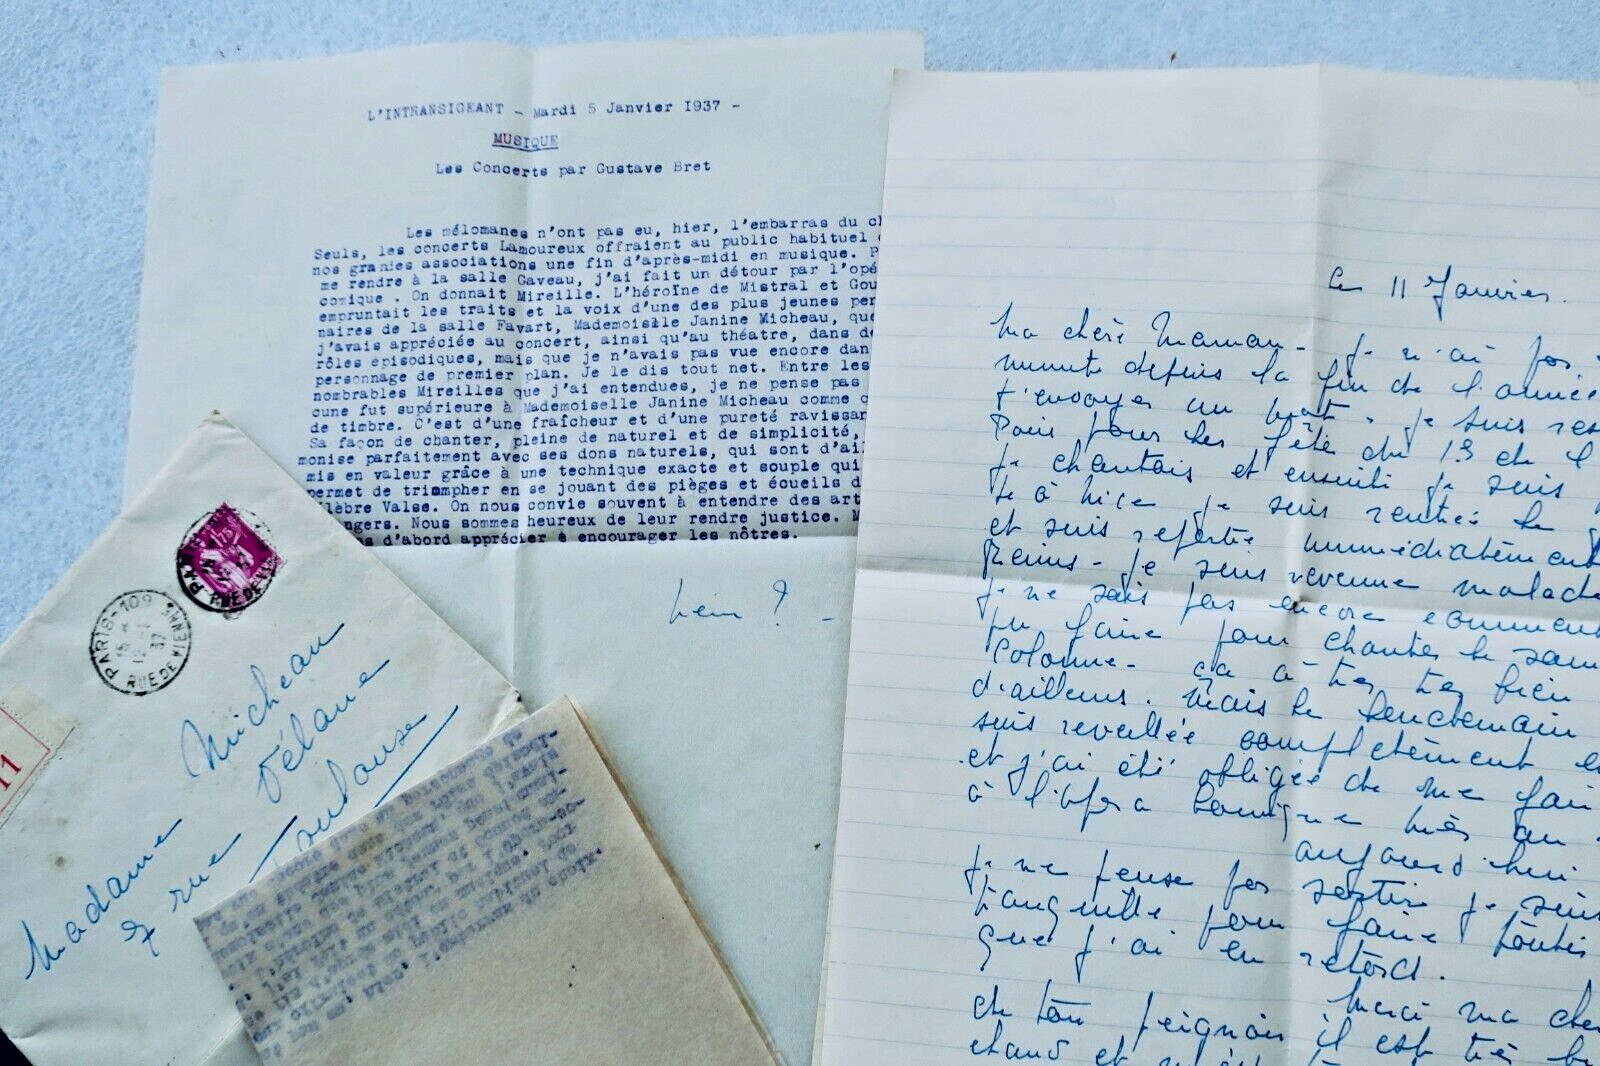 L'INTRANSIGEANT - Mardi 5 Janvier 1937 -
MUSIQUE
Les Concerts par Gustave Bret
Les mélomanes n'ont pas eu, hier, l'embarras du ch
Seuls, les concerts Lamoureux offraient au public habituel
nos grandes associations une fin d'après-midi en musique. P
me rendre à la salle Gaveau, j'ai fait un détour par l'opé
comique . On donnait Mireille. L'héroïne de Mistral et Gou
empruntait les traits et la voix d'une des plus jeunes pen
naires de la salle Favart, Mademoisèle Janine Micheau, que
j'avais appréciée au concert, ainsi qu'au théatre, dans de
rôles épisodiques, mais que je n'avais pas vue encore dan
personnage de premier plan. Je le dis tout net. Entre les
nombrables Mireilles que j'ai entendues, je ne pense pas
cune fut supérieure à Mademoiselle Janine Micheau comme q
de timbre. C'est d'une fraîcheur et d'une pureté ravissan
Sa façon de chanter, pleine de naturel et de simplicité,
monise parfaitement avec ses dons naturels, qui sont d'ail
mis en valeur grâce à une technique exacte et souple qui
permet de triompher en se jouant des pièges et écueils d
lèbre Valse. On nous convie souvent à entendre des art
angers. Nous sommes heureux de leur rendre justice. M
s d'abord apprécier à encourager les nôtres.
hein ? -
Le 11 Janvier.
Ma chère Maman - Je n'ai pas
minute depuis la fin de l'année
t'envoyer un mot. Je suis res
Paris pour les fête du 1er de l'
Je chantais et ensuite je suis
te à Nice je suis rentrée le
et suis repartie immédiatement
Reims - Je suis revenue malade
je ne sais pas encore comment
pu faire pour chanter le sam
Colonne - ça a très très bien
d'ailleurs. Mais le lendemain
suis reveillée complètement
et j'ai été obligée de me fair
à l'opéra comique hier au
aujourd'hui
Je ne pense pas sortir je suis
tranquille pour faire toutes
que j'ai en retard.
Merci ma cher
de ton peignoir il est très b
chaud et
1,75
PARIS-109
15
12 - 1
37
RUE DE VIENNE
11
Madame Micheau
7 rue Vélane
Toulouse